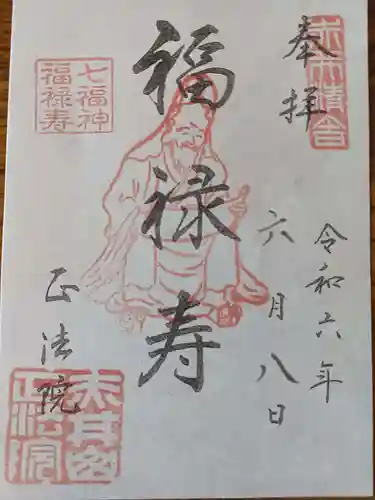 奉拝
令和六年
六月八日
福禄寿
七福神
福禄寿
正法院